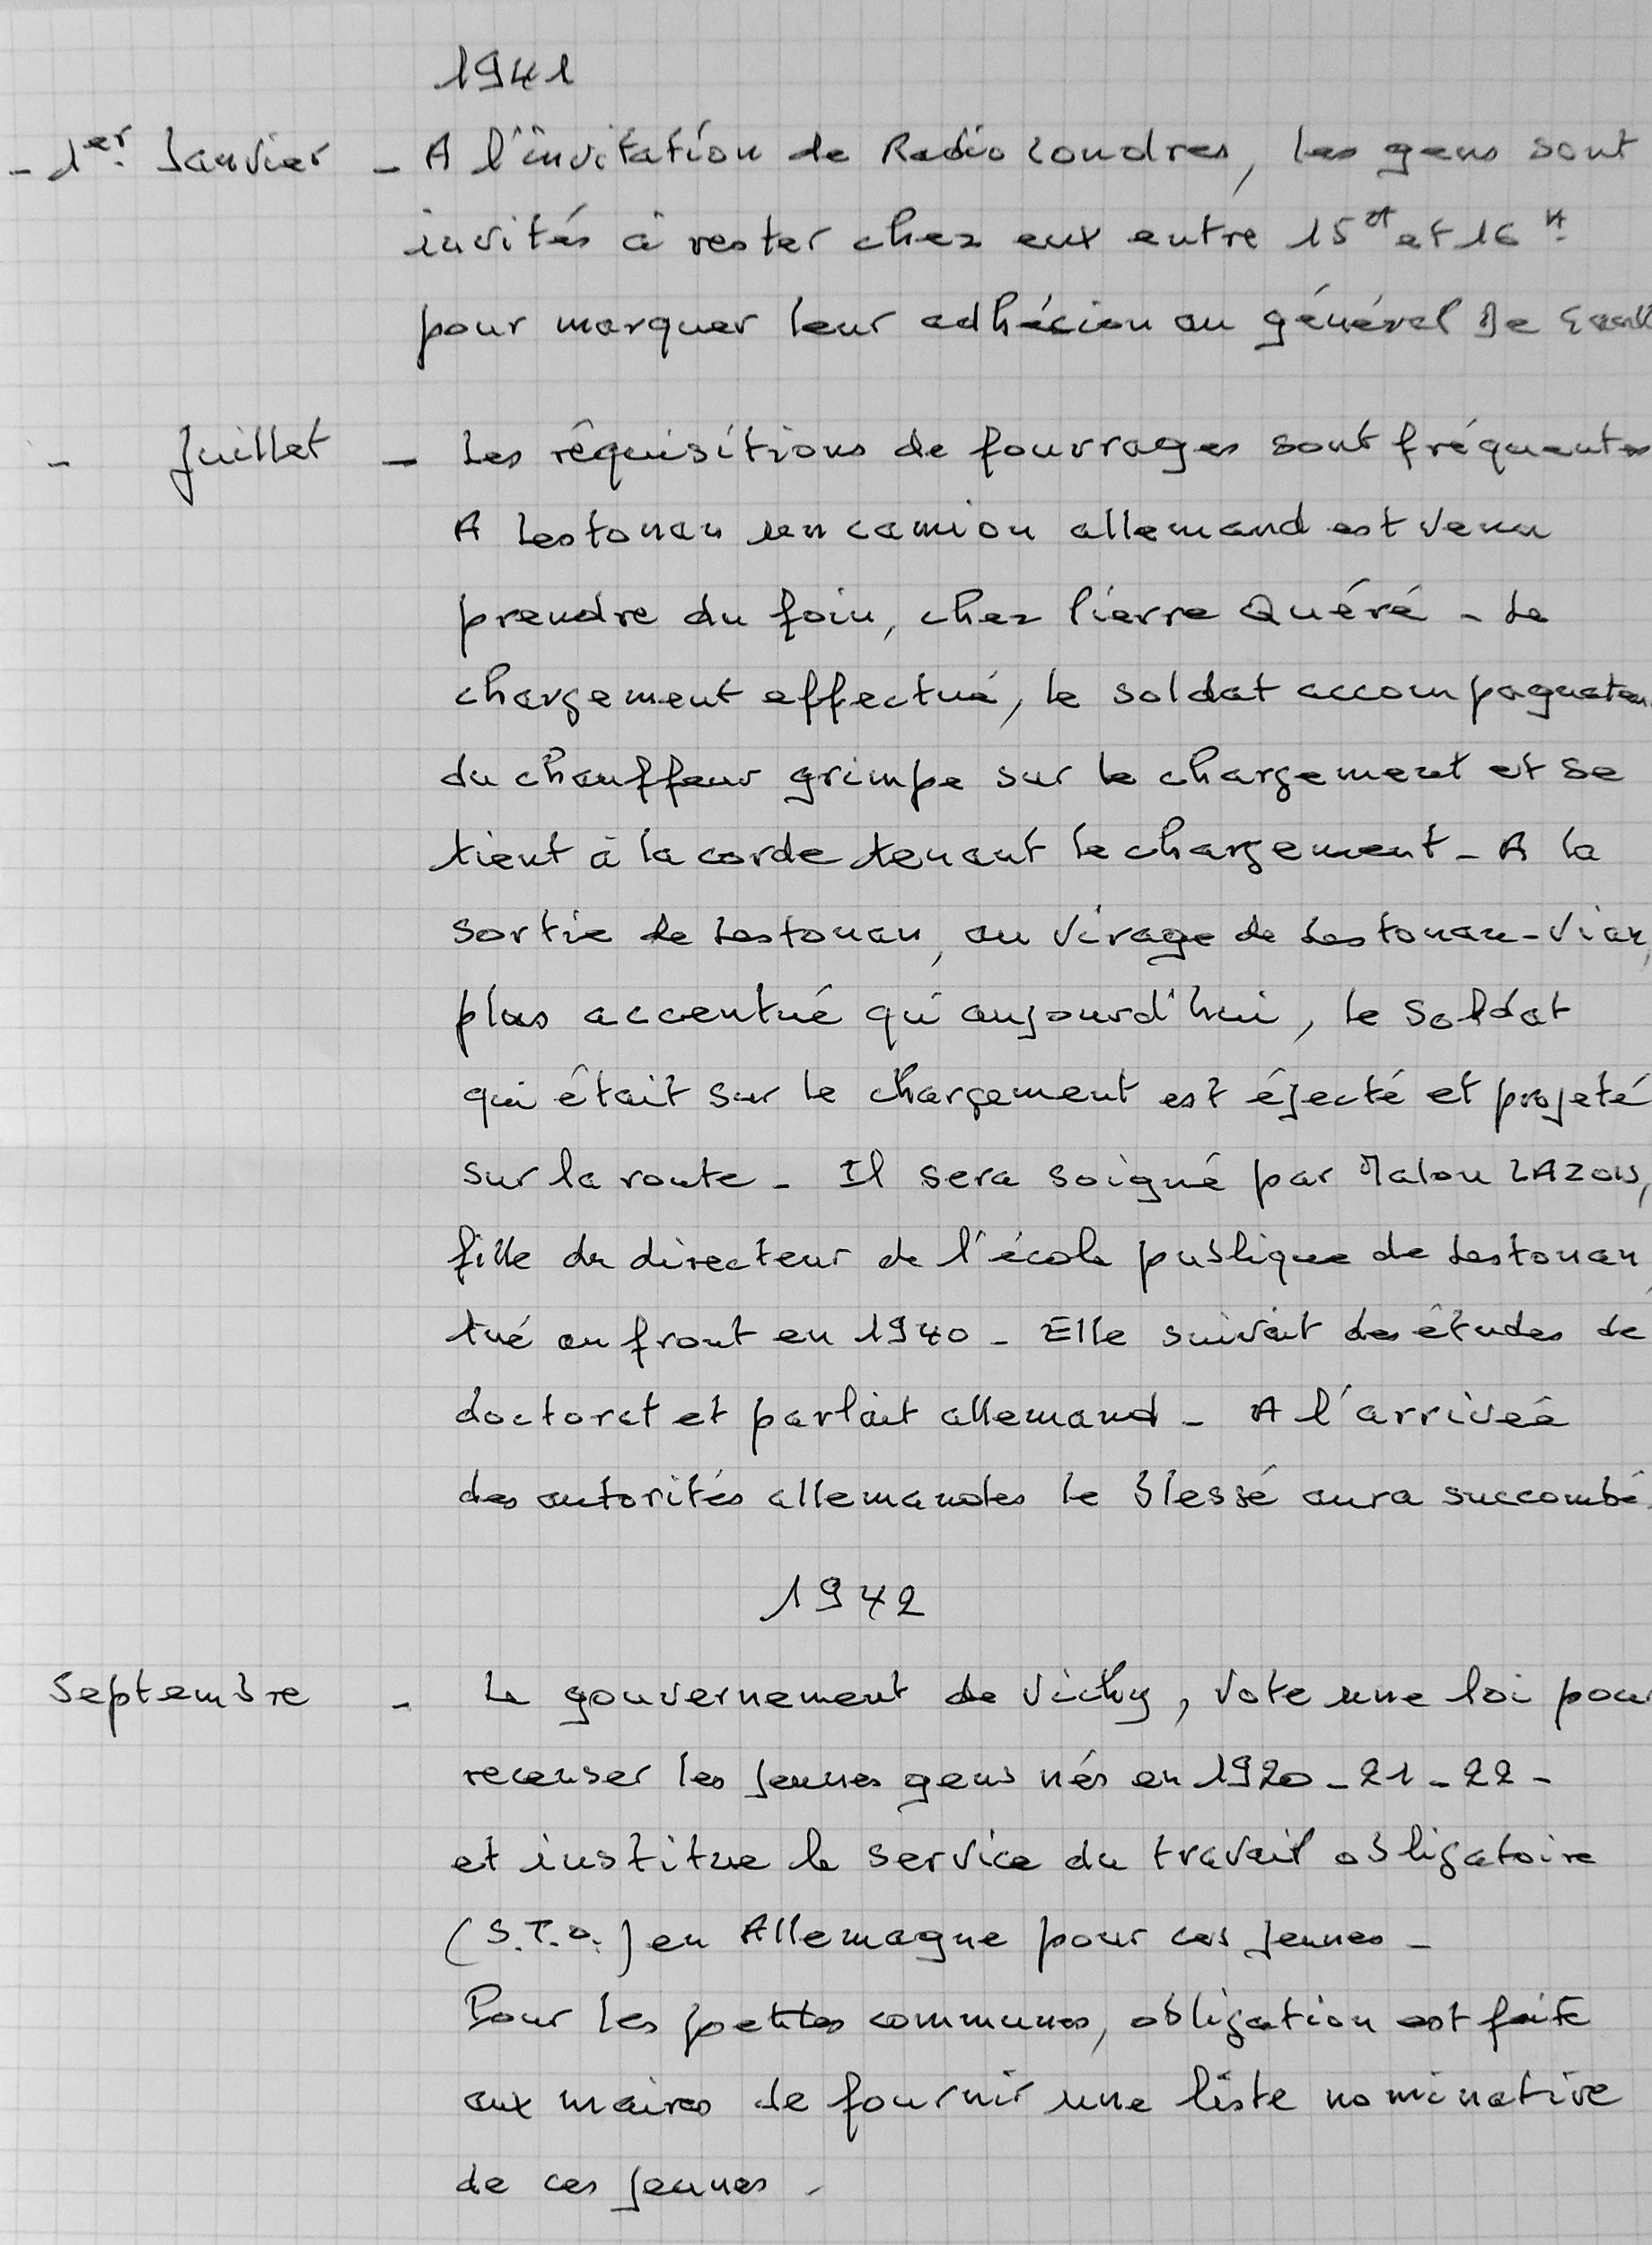 1941
- 1er Janvier - A l'invitation de Radio Londres, les gens sont
invités à rester chez eux entre 15H et 16H
pour marquer leur adhécion au général De Gaull
- Juillet - Les réquisitions de fourrages sont fréquentes
A Lestonan un camion allemand est venu
prendre du foin, chez Pierre Quéré - Le
chargement effectué, le soldat accompagnateur
du chauffeur grimpe sur le chargement et se
tient à la corde tenant le chargement - A la
sortie de Lestonan, au virage de Lestonan-Vian,
plus accentué qu'aujourd'hui, le soldat
qui était sur le chargement est éjecté et projeté
sur la route - Il sera soigné par Malou LAZOU,
fille du directeur de l'école publique de Lestonan
tué au front en 1940 - Elle suivait des études de
doctorat et parlait allemand - A l'arrivée
des autorités allemandes le blessé aura succombé.
1942
Septembre - Le gouvernement de Vichy, vote une loi pour
recenser les jeunes gens nés en 1920 - 21 - 22 -
et institue le service du travail obligatoire
(S.T.O.) en Allemagne pour ces jeunes -
Pour les petites communes, obligation est faite
aux maires de fournir une liste nominative
de ces jeunes -